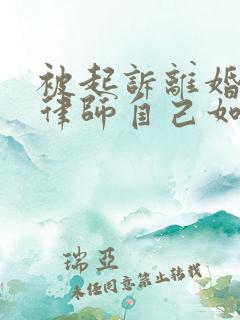 被起訴離婚
律師自己如
瑞亞
未任同意禁止转载